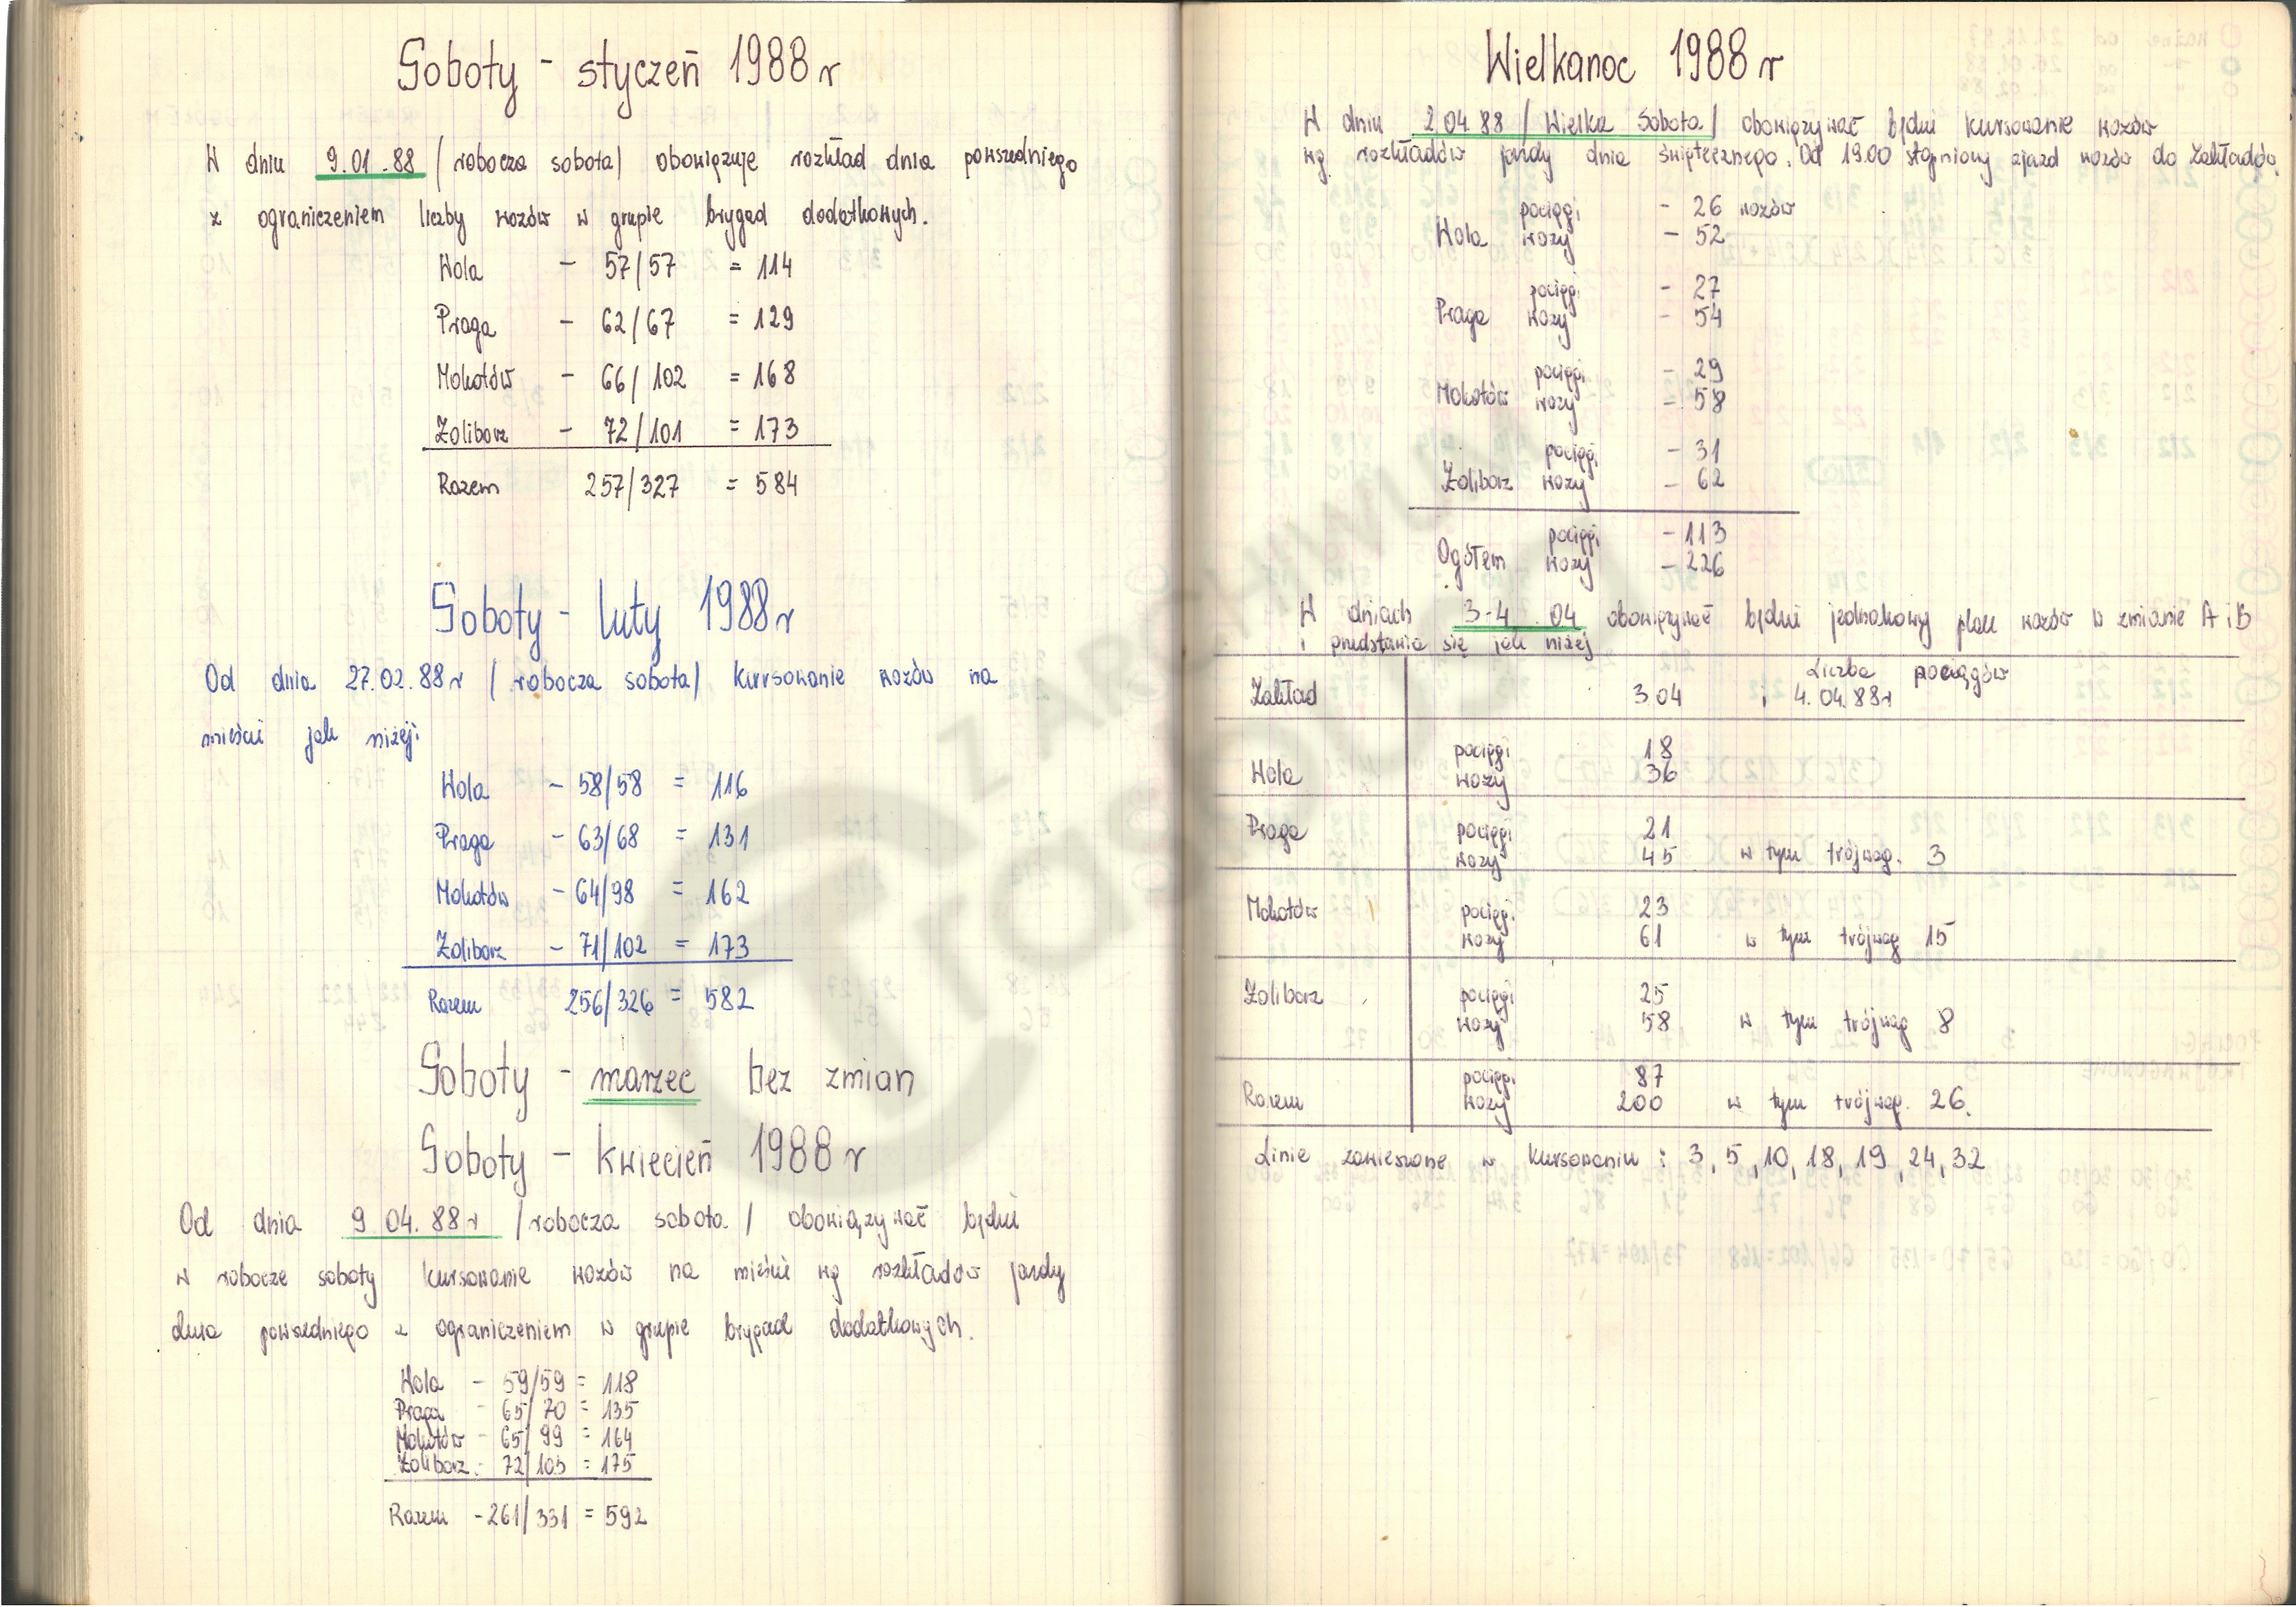 Soboty - styczeń 1988 r
W dniu 9.01.88 /robocza sobota/ obowiązuje rozkład dnia powszedniego
z ograniczeniem liczby wozów w grupie brygad dodatkowych.
Wola - 57/57 = 114
Praga - 62/67 = 129
Mokotów - 66/102 = 168
Żoliborz - 72/101 = 173
Razem 257/327 = 584
Soboty - luty 1988 r
Od dnia 27.02.88 r /robocza sobota/ kursowanie wozów na
mieście jak niżej:
Wola - 58/58 = 116
Praga - 63/68 = 131
Mokotów - 64/98 = 162
Żoliborz - 71/102 = 173
Razem 256/326 = 582
Soboty - marzec bez zmian
Soboty - kwiecień 1988 r
Od dnia 9 04.88 r /robocza sobota/ obowiązywać będzie
w robocze soboty kursowanie wozów na mieście wg rozkładów jazdy
dnia powszedniego z ograniczeniem w grupie brygad dodatkowych.
Wola - 59/59 = 118
Praga - 65/70 = 135
Mokotów - 65/99 = 164
Żoliborz - 72/103 = 175
Razem - 261/331 = 592
Wielkanoc 1988 r
W dniu 2.04.88 /Wielka Sobota/ obowiązywać będzie kursowanie wozów
wg rozkładów jazdy dnia świątecznego. Od 19.00 stopniowy zjazd wozów do Zakładów.
pociągi - 26 wozów
Wola wozy - 52
pociągi - 27
Praga wozy - 54
pociągi - 29
Mokotów wozy - 58
pociągi - 31
Żoliborz wozy - 62
pociągi - 113
Ogółem wozy - 226
W dniach 3-4.04 obowiązywać będzie jednakowy plan wozów w zmianie A i B
i przedstawia się jak niżej
Liczba pociągów
Zakład 3 04 i 4.04.88r
pociągi 18
Wola wozy 36
Praga pociągi 21
wozy 45 w tym trójwag. 3
Mokotów pociągi 23
wozy 61 w tym trójwag 15
Żoliborz pociągi 25
wozy 58 w tym trójwag 8
pociągi 87
Razem wozy 200 w tym trójwag. 26.
Linie zawieszone w kursowaniu : 3, 5, 10, 18, 19, 24, 32